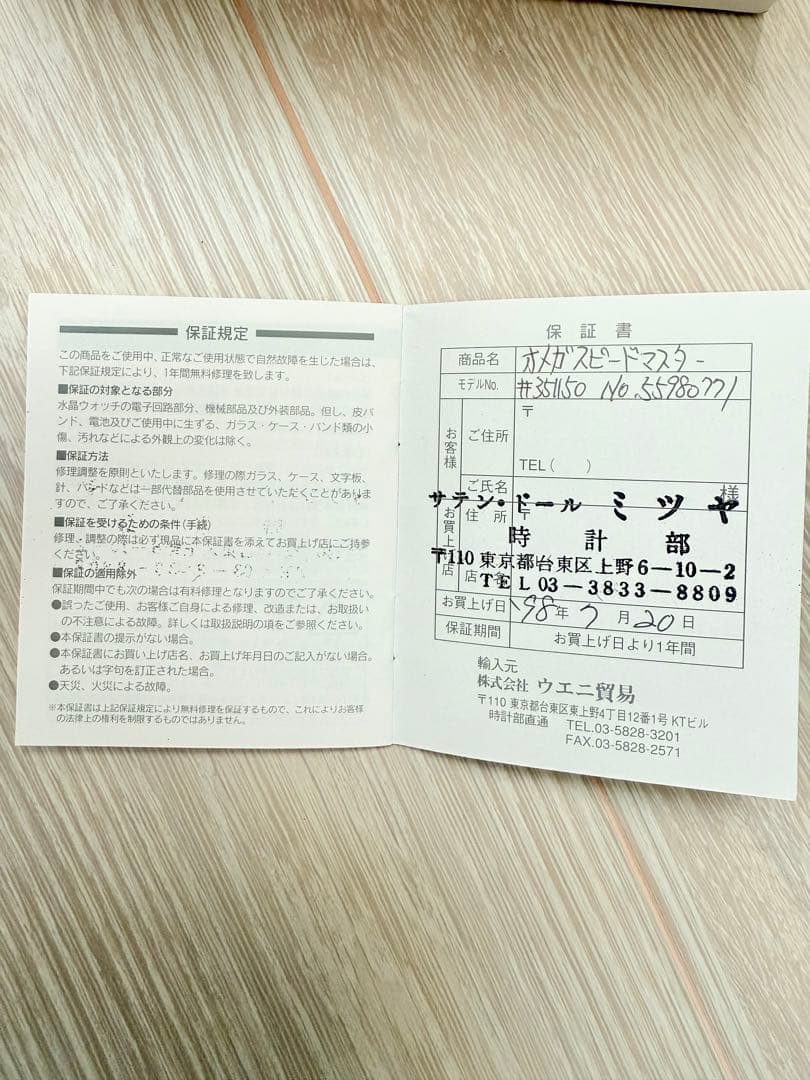 保証規定
この商品をご使用中、正常なご使用状態で自然故障を生じた場合は、
下記保証規定により、1年間無料修理を致します。
■保証の対象となる部分
水晶ウォッチの電子回路部分、機械部品及び外装部品。但し、皮バ
ンド、電池及びご使用中に生ずる、ガラス・ケース・バンド類の小
傷、汚れなどによる外観上の変化は除く。
■保証方法
修理調整を原則といたします。修理の際ガラス、ケース、文字板、
針、バンドなどは一部代替部品を使用させていただくことがありま
すので、ご了承ください。
■保証を受けるための条件(手続)
修理、調整の際は必ず現品に本保証書を添えてお買上げ店にご持参
ください。
■保証の適用除外
保証期間中でも次の場合は有料修理となりますのでご了承ください。
●誤ったご使用、お客様ご自身による修理、改造または、お取扱い
の不注意による故障。詳しくは取扱説明の項をご参照ください。
●本保証書の提示がない場合。
●本保証書にお買上げ店名、お買上げ年月日のご記入がない場合。
あるいは字句を訂正された場合。
●天災、火災による故障。
※本保証書は上記保証規定により無料修理を保証するもので、これによりお客様
の法律上の権利を制限するものではありません。
保証書
商品名 オメガスピードマスター
モデルNo. #351150 No.55980771
お客様 ご住所 〒
TEL( )
ご氏名 様
サテン・ドール ミツヤ
お買上げ店 住所 〒
時計部
〒110 東京都台東区上野6-10-2
店名
TEL 03-3833-8809
お買上げ日 '98年7月20日
保証期間 お買上げ日より1年間
輸入元
株式会社 ウエニ貿易
〒110 東京都台東区東上野4丁目12番1号 KTビル
時計部直通 TEL.03-5828-3201
FAX.03-5828-2571